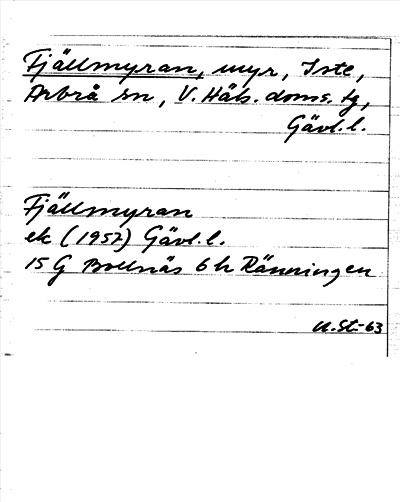 Fjällmyran, myr, Iste,
Arbrå sn, V. Häls. doms. tg,
Gävl.l.
Fjällmyran
ek (1957) Gävl.l.
15 G Bollnäs 6 h Ränningen
U.St-63